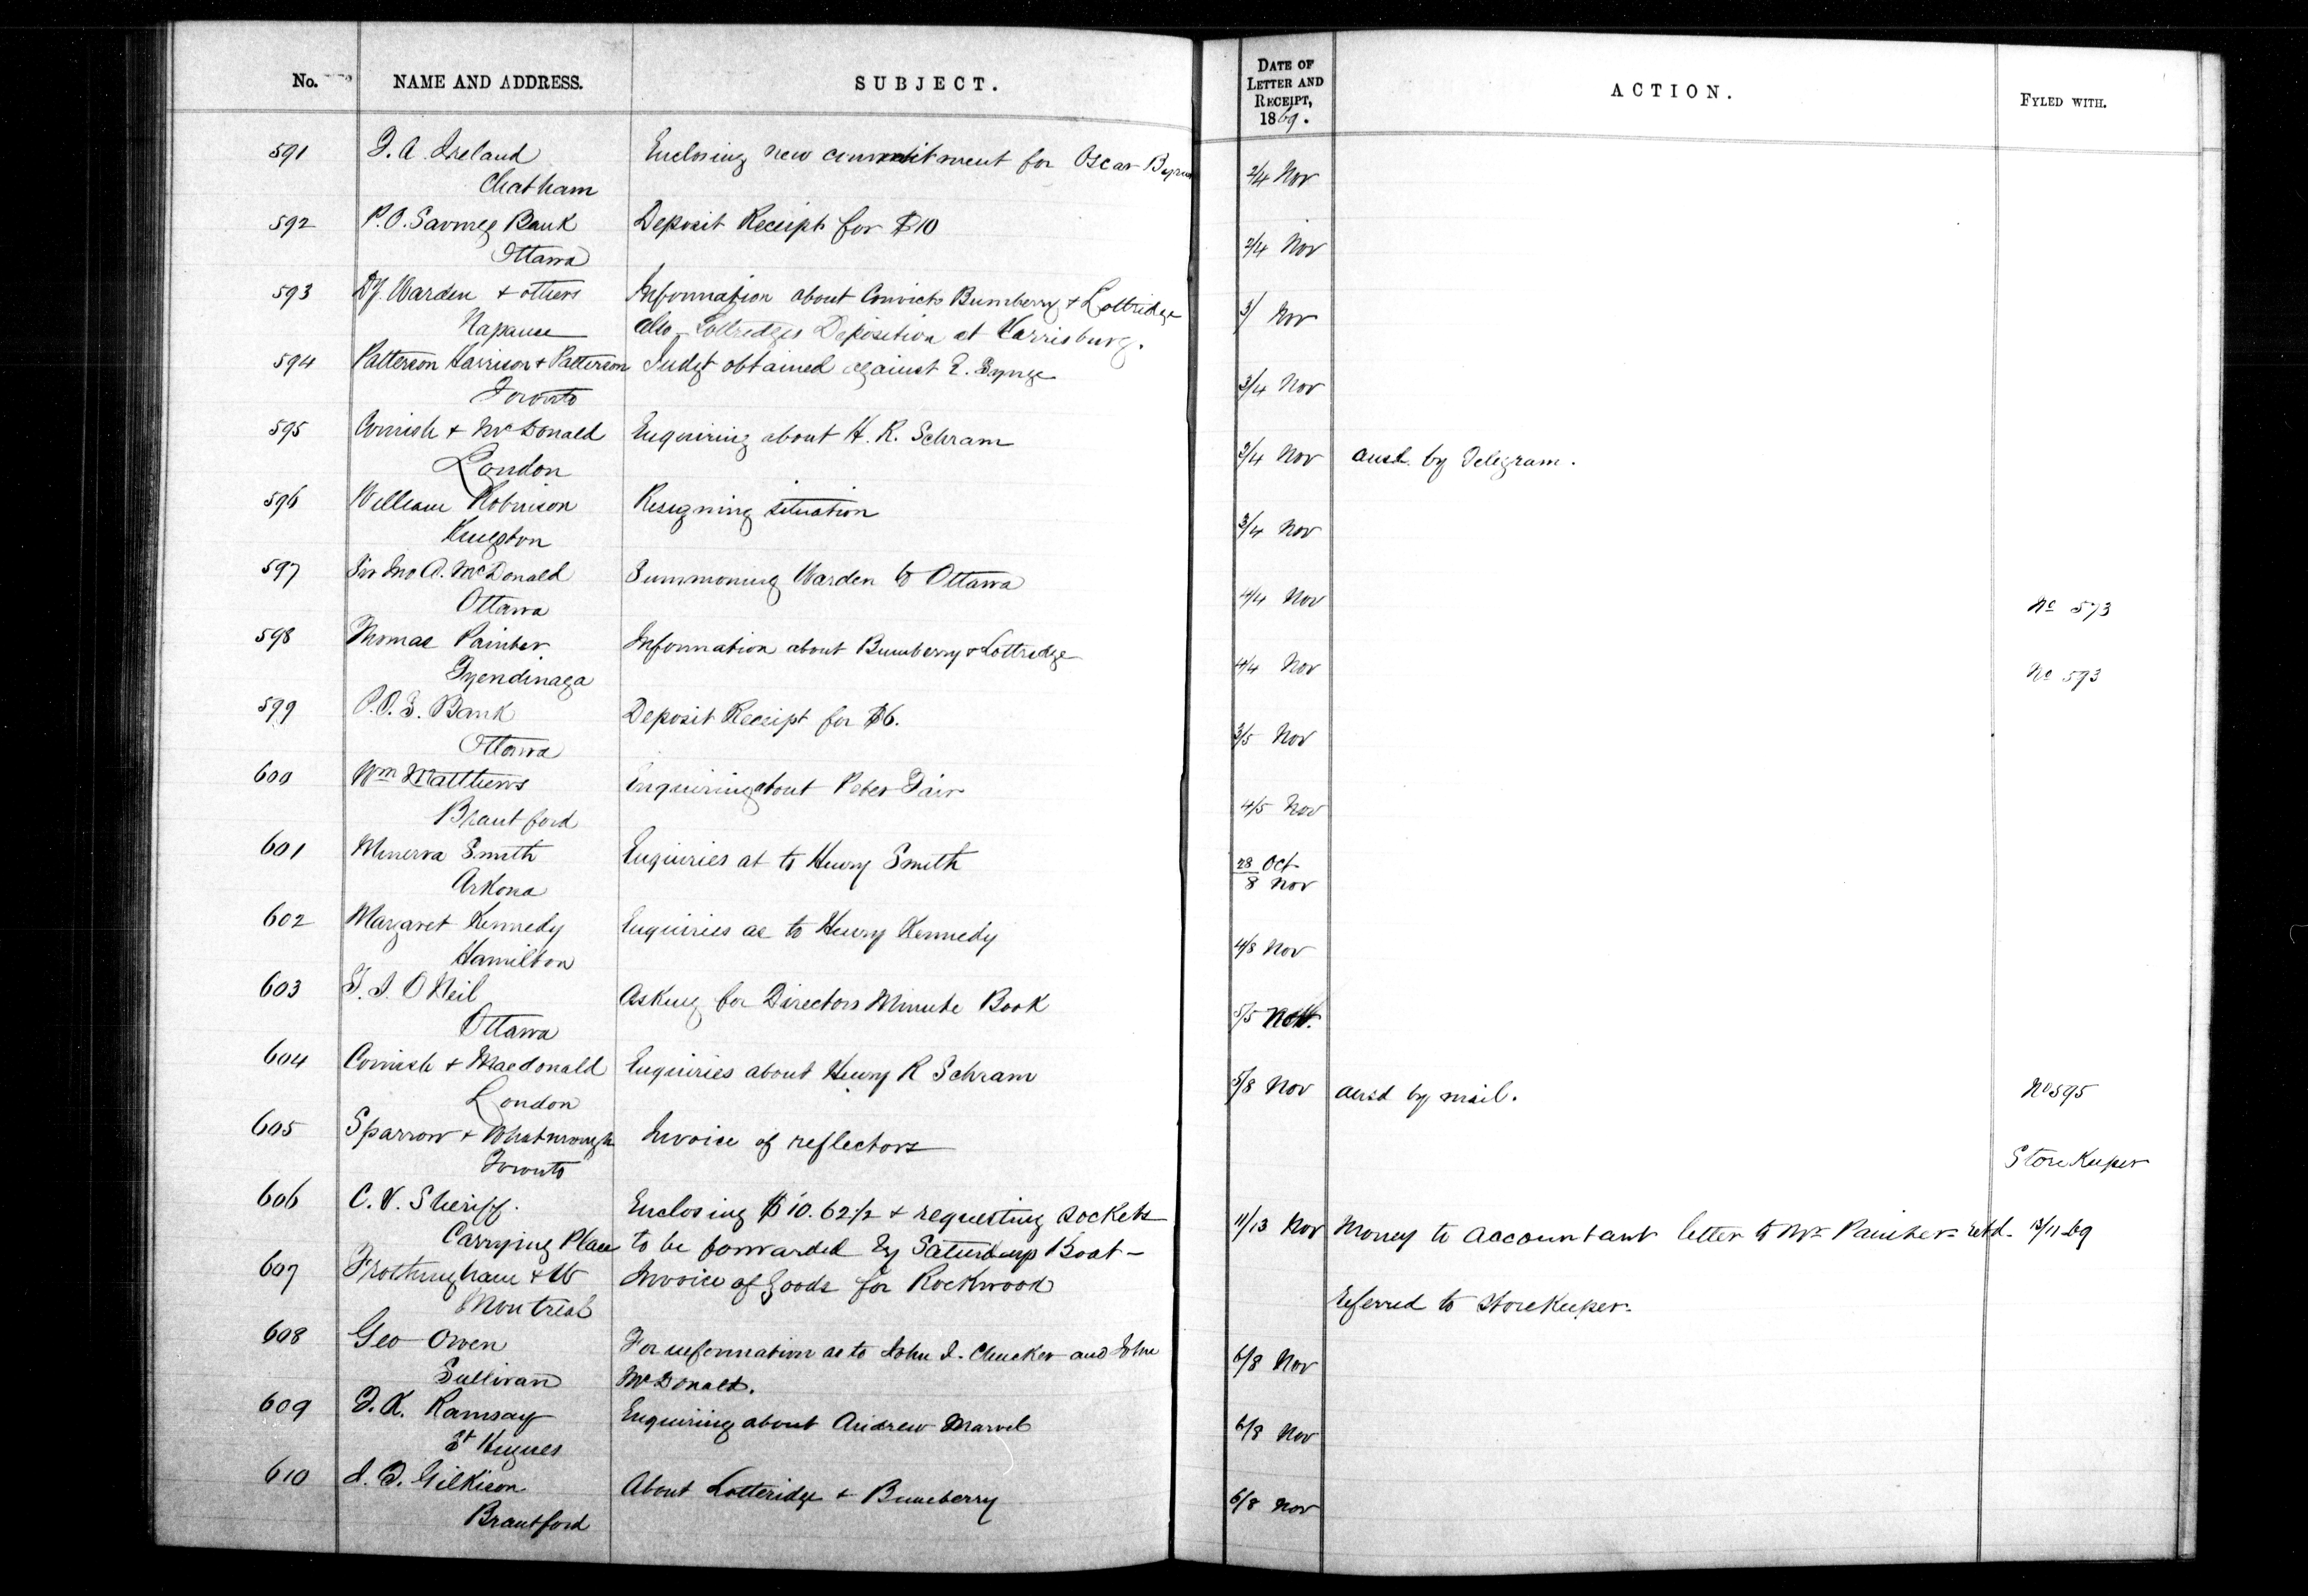 No. NAME AND ADDRESS. SUBJECT. DATE OF LETTER AND RECEIPT, 1869. ACTION. FYLED WITH.
591 Ireland Enclosing new commitment for Oscar 2/4 Nov
Chatham
592 P.O. Savings Bank Deposit Receipt for $10 2/4 Nov
Ottawa
593 Dy. Warden & others Information about Convicts Bumberry & Lottridge 3/ Nov
Napanee also Lottredges Deposition at Harrisburg.
594 Patterson Harrison & Patterson Judgt obtained against E. 3/4 Nov
Toronto
595 Cornish & McDonald Enquiring about H. R. Schram 3/4 Nov ansd. by Telegram.
London
596 William Robinson Resigning situation 3/4 Nov
Kingston
597 Sir Jno A. McDonald Summoning Warden to Ottawa 4/4 Nov No 573
Ottawa
598 Thomas Painter Information about Bumberry & Lottredge 4/4 Nov No 593
Tyendinaga
599 P.O.S. Bank Deposit Receipt for $6. 3/5 Nov
Ottawa
600 Wm Matthews Enquiring about Peter Fair 4/5 Nov
Brantford
601 Minerva Smith Enquiries as to Henry Smith 28 Oct
Arkona 8 Nov
602 Margaret Kennedy Enquiries as to Henry Kennedy 4/8 Nov
Hamilton
603 O Neil Asking for Directors Minute Book 5/5 Nov.
Ottawa
604 Cornish & Macdonald Enquiries about Henry R Schram 5/8 Nov ansd by mail. No 595
London
605 Sparrow & Invoice of reflectors Store Keeper
Toronto
606 C. V. Sheriff. Enclosing $10.62½ & requesting sockets 11/13 Nov Money to Accountant letter to Mr Painter retd. 13/11-69
Carrying Place to be forwarded by Saturdays Boat -
607 Frothingham & W Invoice of goods for Rockwood Referred to Storekeeper.
Montreal
608 Geo Owen For information as to John and John 6/8 Nov
Sullivan McDonald.
609 Ramsay Enquiring about Andrew Marvel 6/8 Nov
St Hugues
610 Gilkison About Lotteridge & Bumberry 6/8 Nov
Brantford